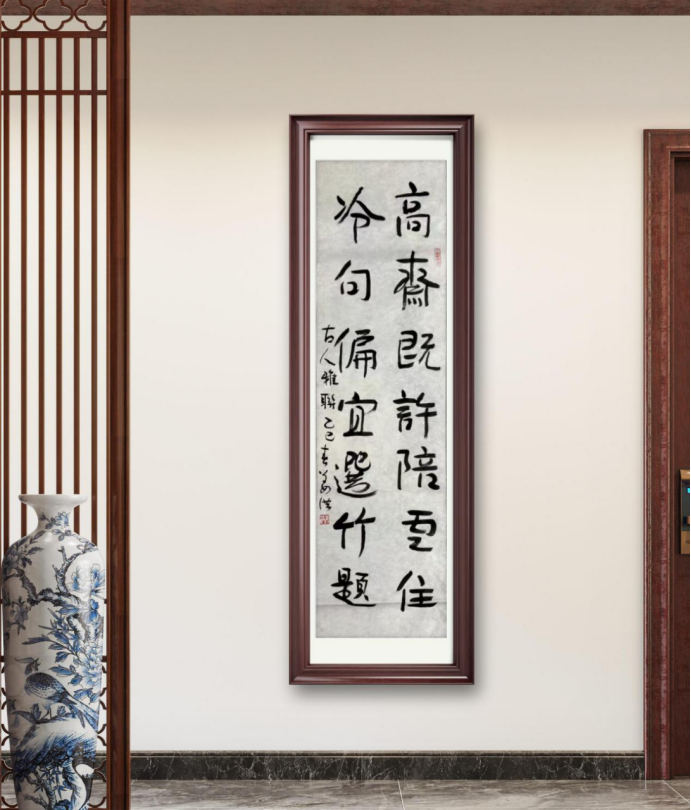 高齋既許陪雲住
冷句偏宜選竹題
古人雅聯乙巳春姜浩